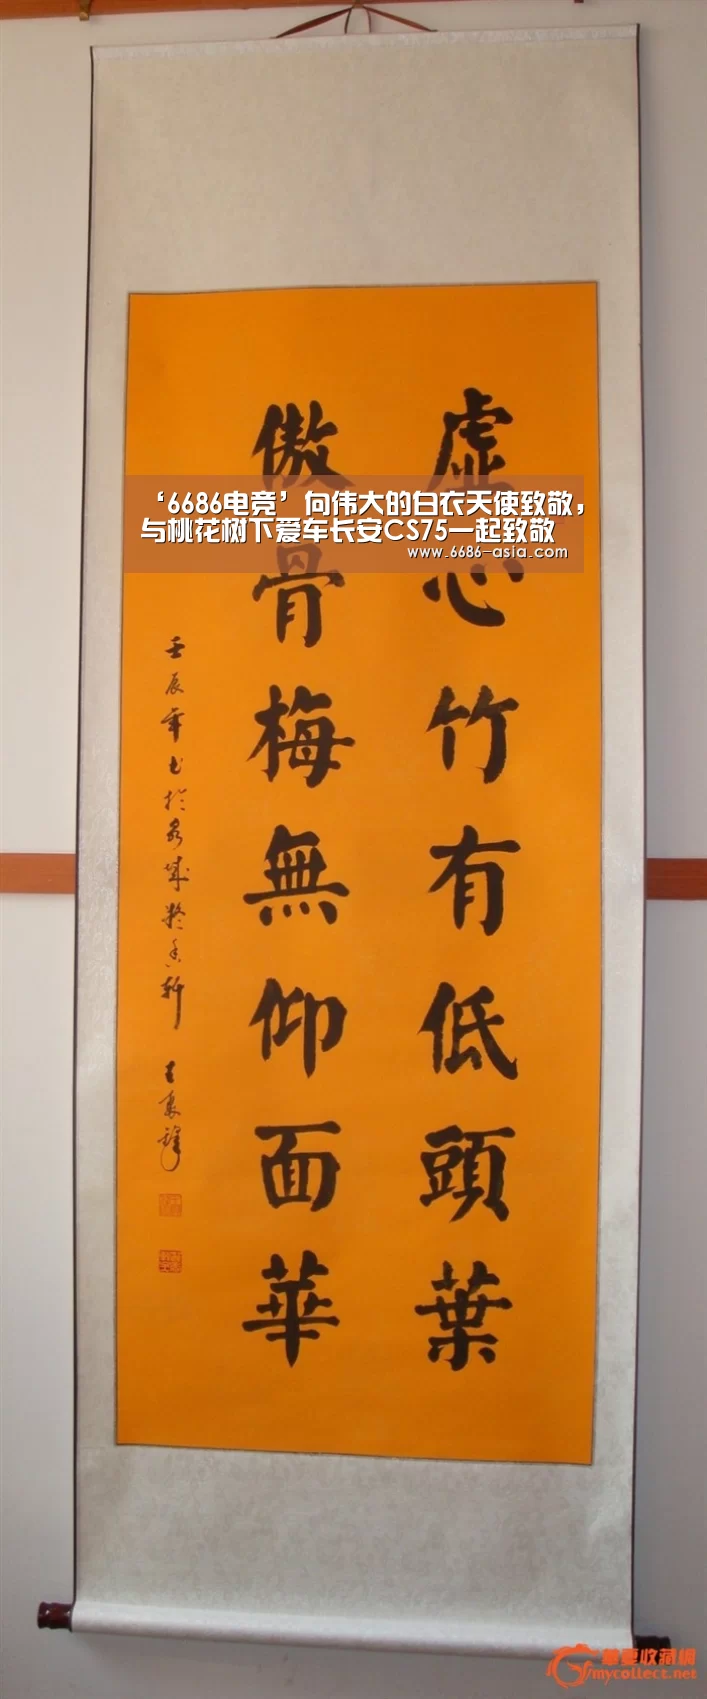 虚心竹有低頭葉
傲骨梅無仰面華
壬辰年書於泉城
‘6686电竞’向伟大的白衣天使致敬，
与桃花树下爱车长安CS75一起致敬
www.6686-asia.com
华夏收藏網
mycollect.net